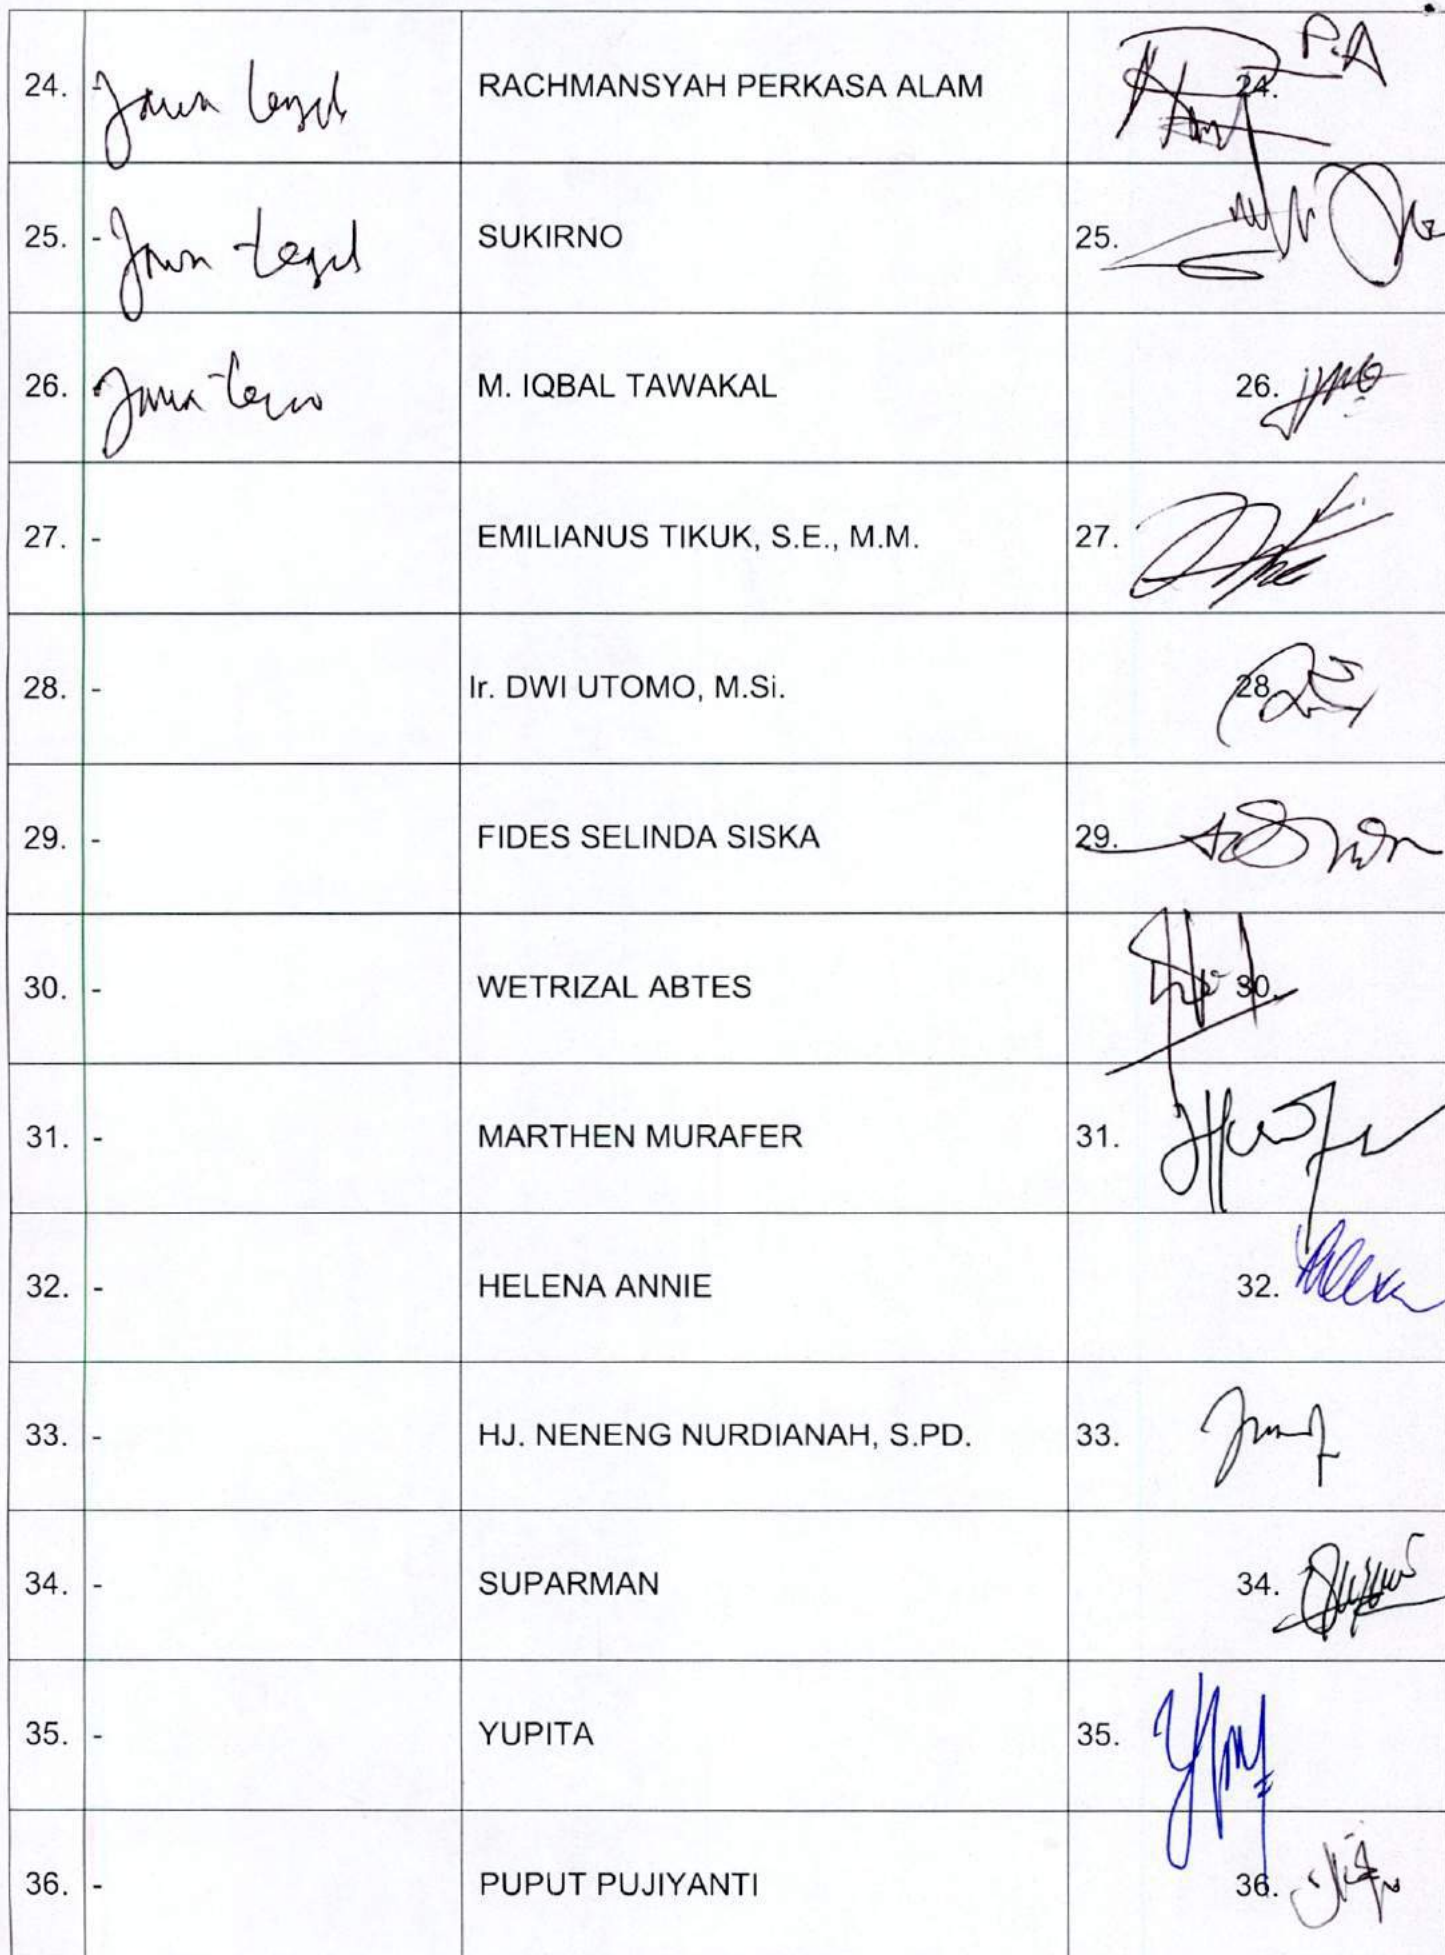 24. - Jawa Tengah RACHMANSYAH PERKASA ALAM 24. P.A
25. - Jawa Tengah SUKIRNO 25.
26. - Jawa M. IQBAL TAWAKAL 26.
27. - EMILIANUS TIKUK, S.E., M.M. 27.
28. - Ir. DWI UTOMO, M.Si. 28.
29. - FIDES SELINDA SISKA 29.
30. - WETRIZAL ABTES 30.
31. - MARTHEN MURAFER 31.
32. - HELENA ANNIE 32.
33. - HJ. NENENG NURDIANAH, S.PD. 33.
34. - SUPARMAN 34.
35. - YUPITA 35.
36. - PUPUT PUJIYANTI 36.